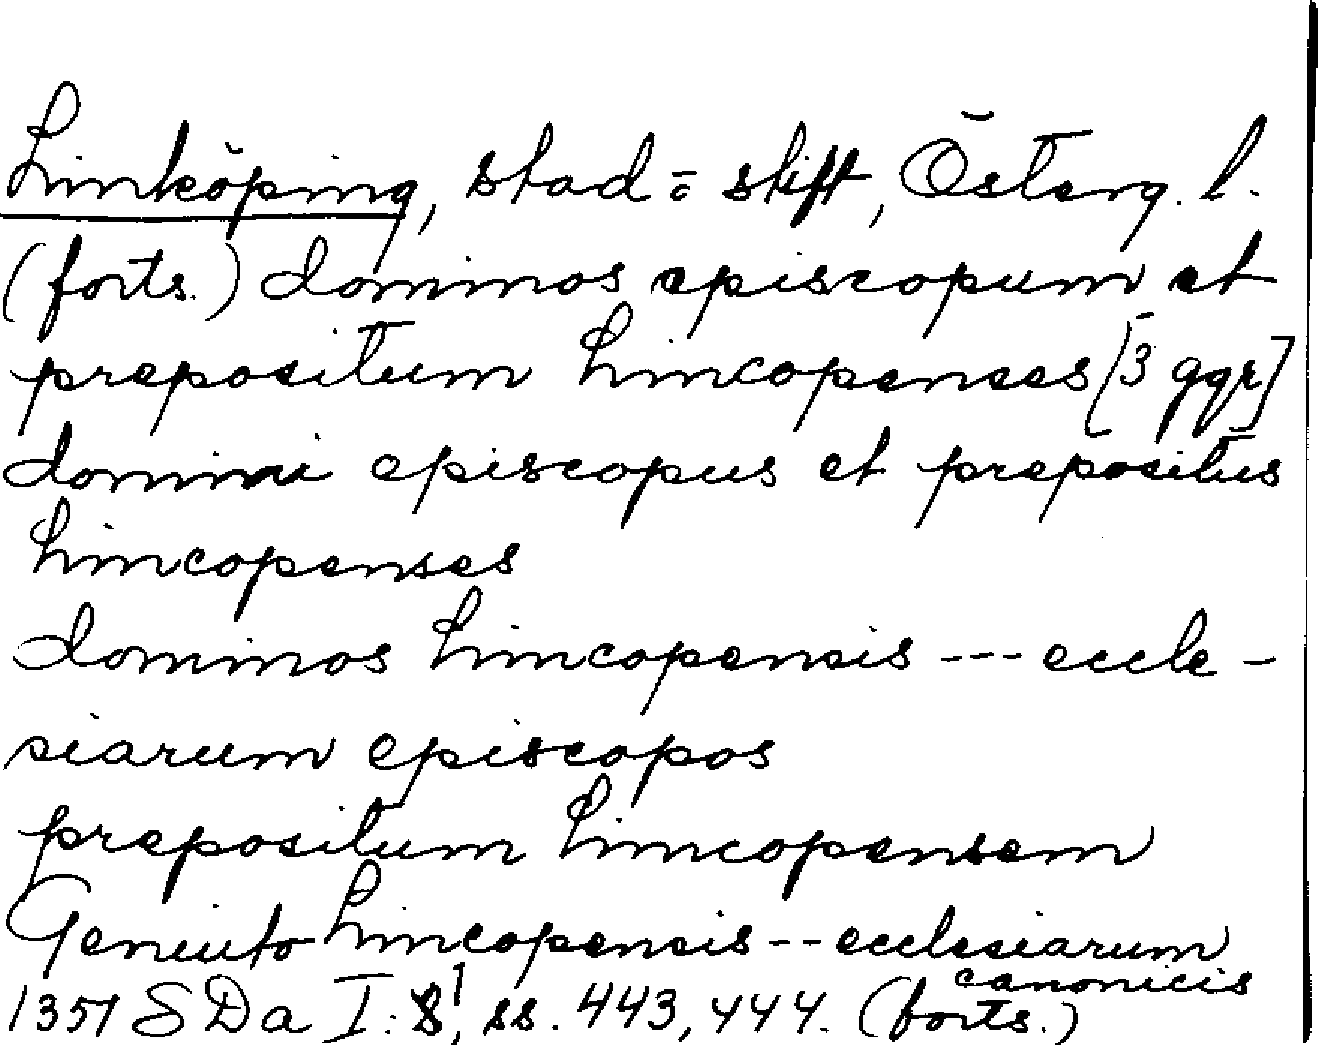 Linköping, stad o. stift, Österg. l.
(forts.) dominos episcopum et
prepositum Lincopenses [3 ggr]
domini episcopus et prepositus
Lincopenses
dominos Lincopensis --- eccle-
siarum episcopos
prepositum Lincopensem
Lincopensis -- ecclesiarum
canonicis
1351 SDa I: 1, ss. 443, 444. (forts.)